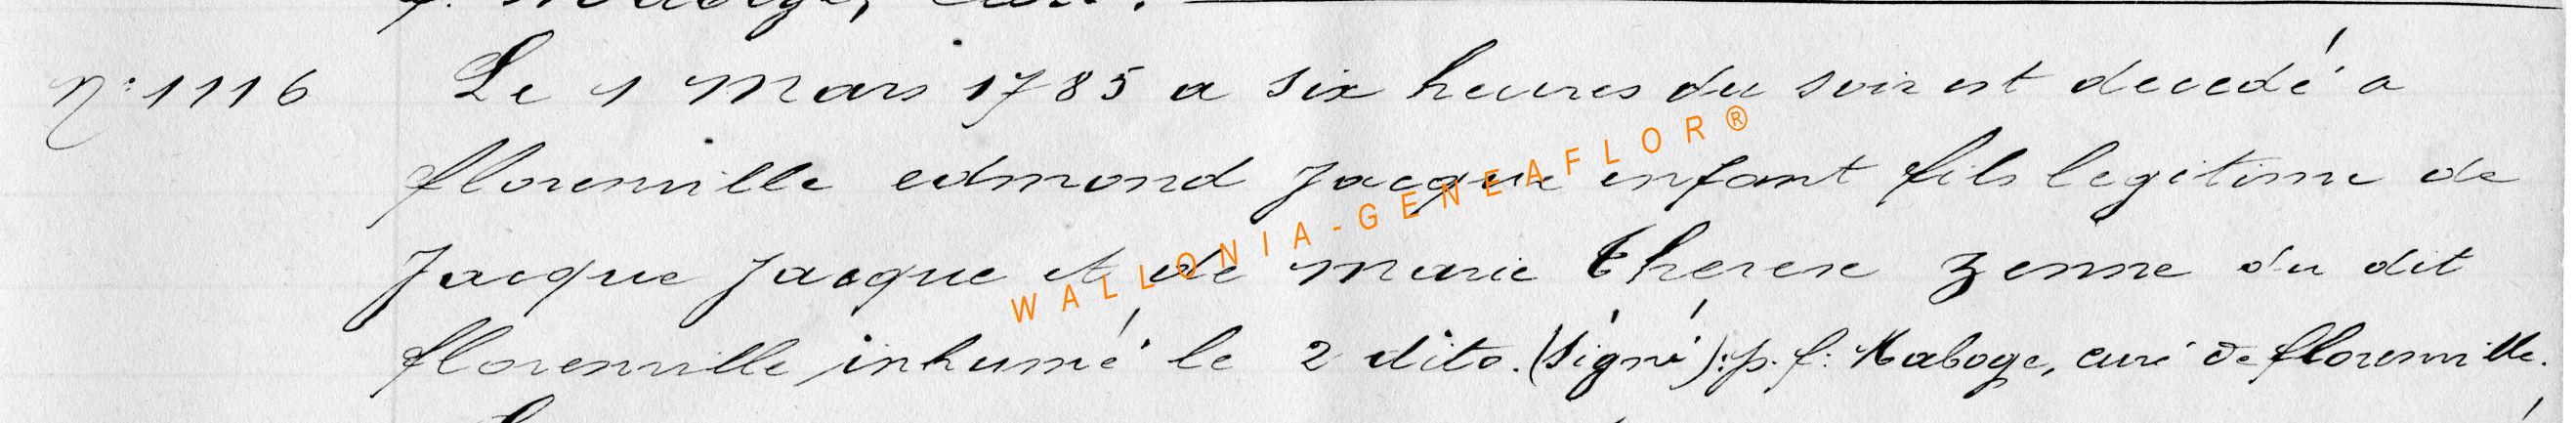 n: 1116 Le 1 Mars 1785 a six heures du soir est decedé a
florenville edmond Jacque enfant fils legitime de
Jacque Jacque et de marie therese zenne du dit
florenville inhumé le 2 dito. (signé): p. f: Maboge, curé de florenville.
WALLONIA-GENEAFLOR®